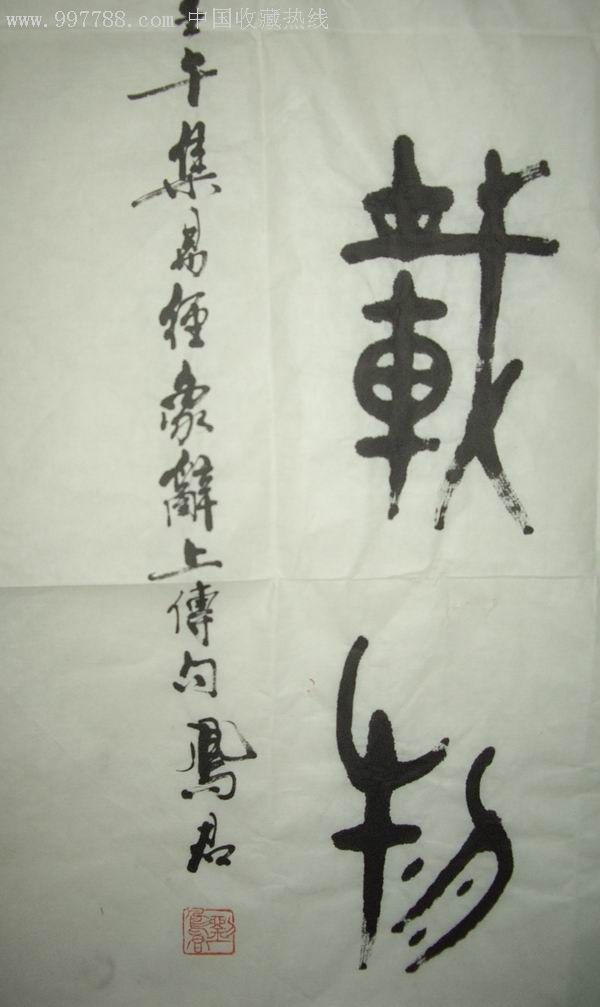 www.997788.com 中国收藏热线
載物
壬午集易經象辭上傳句鳳君